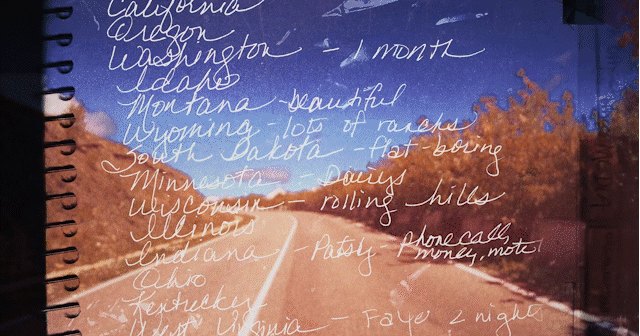 California
Oragon
Washington - 1 month
Idaho
Montana - beautiful
Wyoming - lots of ranchs
South Dakota - flat-boring
Minnesota - Dairys
Wisconsin - rolling hills
Illinois
Indiana - Patsy - phone calls,
money, mote
Ohio
Kentuckey
West Virginia - Faye 2 nights